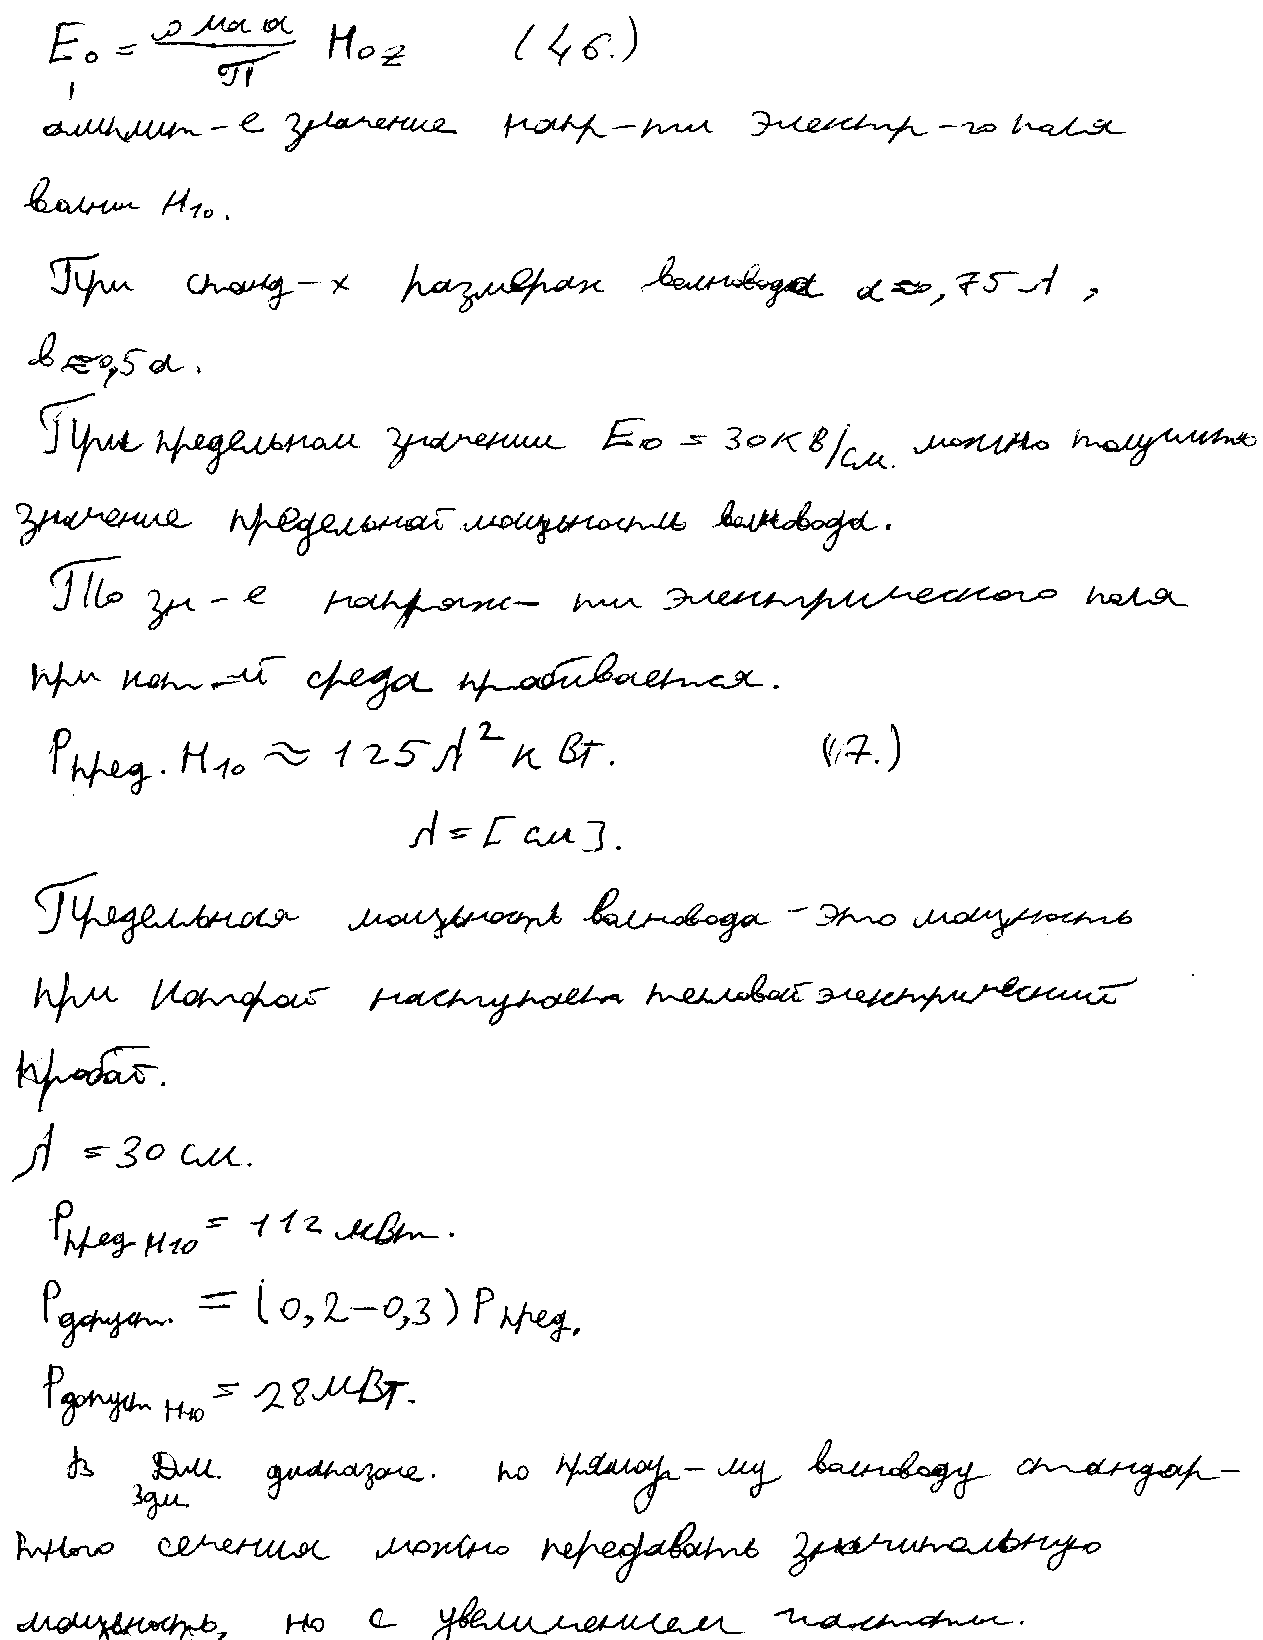 E₀ = ωμₐa/π H₀z (46.)
амплит-е значение напр-ти электр-го поля
волны H₁₀.
При станд-х размерах волновода a≈0,75λ,
b≈0,5a.
При предельном значении E₀ = 30кВ/см. можно получить
значение предельной мощности волновода.
То зн-е напряж-ти электрического поля
при кот-й среда пробивается.
Pпред. H₁₀ ≈ 125λ² кВт. (47.)
λ=[см].
Предельная мощность волновода - это мощность
при которой наступает тепловой электрический
пробой.
λ = 30 см.
Pпред H10 = 112 мВт.
Pдопуст. = (0,2-0,3) Pпред.
Pдопуст H10 = 28 МВт.
В Дм. диапазоне. по прямоуг-му волноводу стандар-
3дм
тного сечения можно передавать значительную
мощность, но с увеличением частоты.